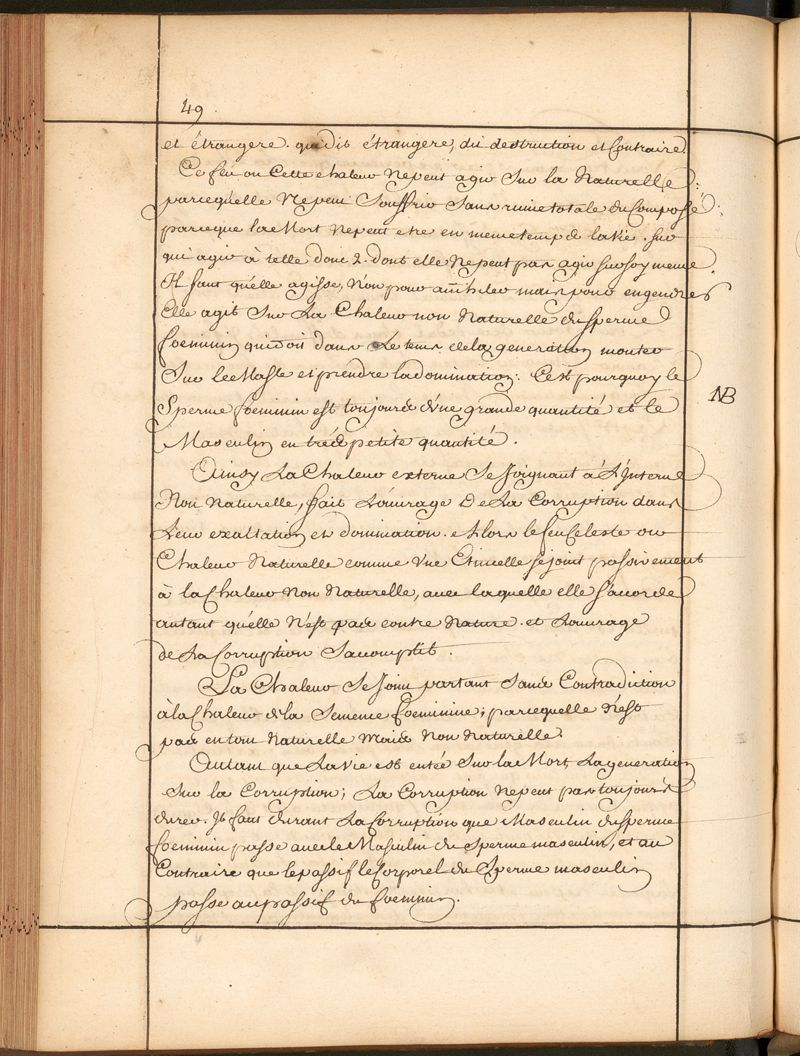 49
et étrangere. qui dit étrangere, dit destruction et Contraire.
Ce feu ou Cette chaleur Ne peut agir Sur la Naturelle
parcequelle Ne peut Souffrir Sans ruine totale du Composé
parceque la Mort Ne peut etre en meme temp de la Vie. Sur
qui agir à telle donc 2. dont elle Ne peut pas agir sur soy meme.
Il faut qu'elle agisse, Non pour annihiler mais pour engendrer
Elle agit Sur La Chaleur non Naturelle du Sperme
foeminin qui doit dans Le tems de la generation monter
Sur le Masle et prendre la domination. C'est pourquoy le
Sperme foeminin est toujours d'une grande quantité et le
Masculin en trés petite quantité.
NB
Ainsy La Chaleur externe Se Joignant à L'Interne
Non Naturelle, fait L'ouvrage De La Corruption dans
Leur exaltation et domination. et lors le feu Celeste ou
Chaleur Naturelle comme Vne Etincelle se joint passivement
à la Chaleur Non Naturelle, avec laquelle elle S'accorde
autant qu'elle N'est pas contre Nature. et L'ouvrage
de La Corruption S'acomplit.
La Chaleur Se Joint partant Sans Contradiction
à la Chaleur de la Semence foeminine; parcequelle N'est
pas en tout Naturelle Mais Non Naturelle.
Autant que La Vie est entée Sur la Mort La generation
Sur la Corruption; La Corruption Ne peut pas toujours
durer. Il faut durant La Corruption que Masculin du Sperme
foeminin passe avec le Masculin du Sperme masculin, et au
Contraire que le passif le Corporel du Sperme masculin
passe au passif du foeminin.